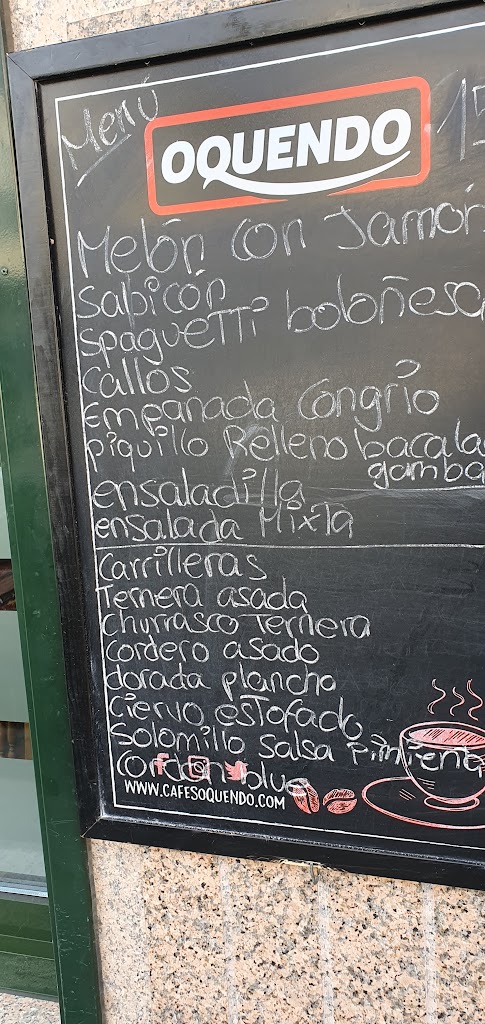 Menú
OQUENDO
15
Melón con Jamón
Salpicón
spaguetti boloñesa
callos
Empanada Congrio
piquillo Relleno bacala
gamba
ensaladilla
ensalada Mixta
carrilleras
Ternera asada
churrasco Ternera
cordero asado
dorada plancha
ciervo estofado
Solomillo Salsa Pimienta
cordon blue
WWW.CAFESOQUENDO.COM